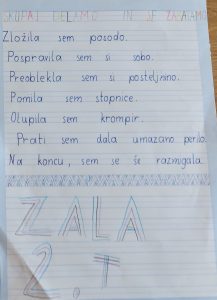 SKUPAJ DELAMO IN SE ZABAVAMO
Zložila sem posodo.
Pospravila sem si sobo.
Preoblekla sem si posteljnino.
Pomila sem stopnice.
Olupila sem krompir.
Prati sem dala umazano perilo.
Na koncu, sem se še razmigala.
ZALA
2. T